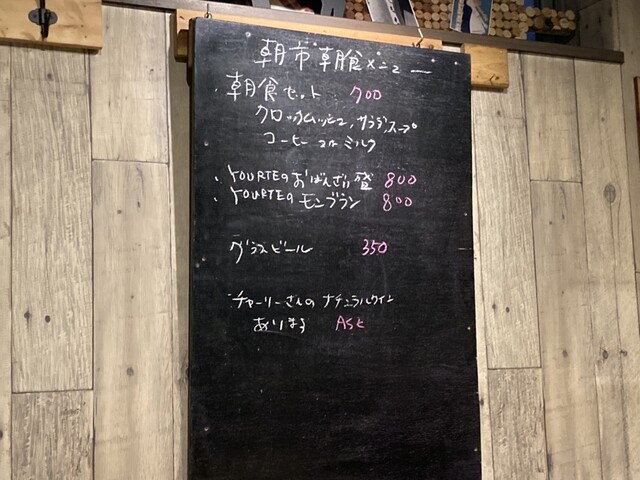 朝市朝食メニュー
・朝食セット 700
クロックムッシュ, サラダ, スープ
コーヒー or ミルク
・YOURTEのおばんざい 800
・YOURTEのモンブラン 800
グラスビール 350
チャーリーさんのナチュラルワイン
あります Ask